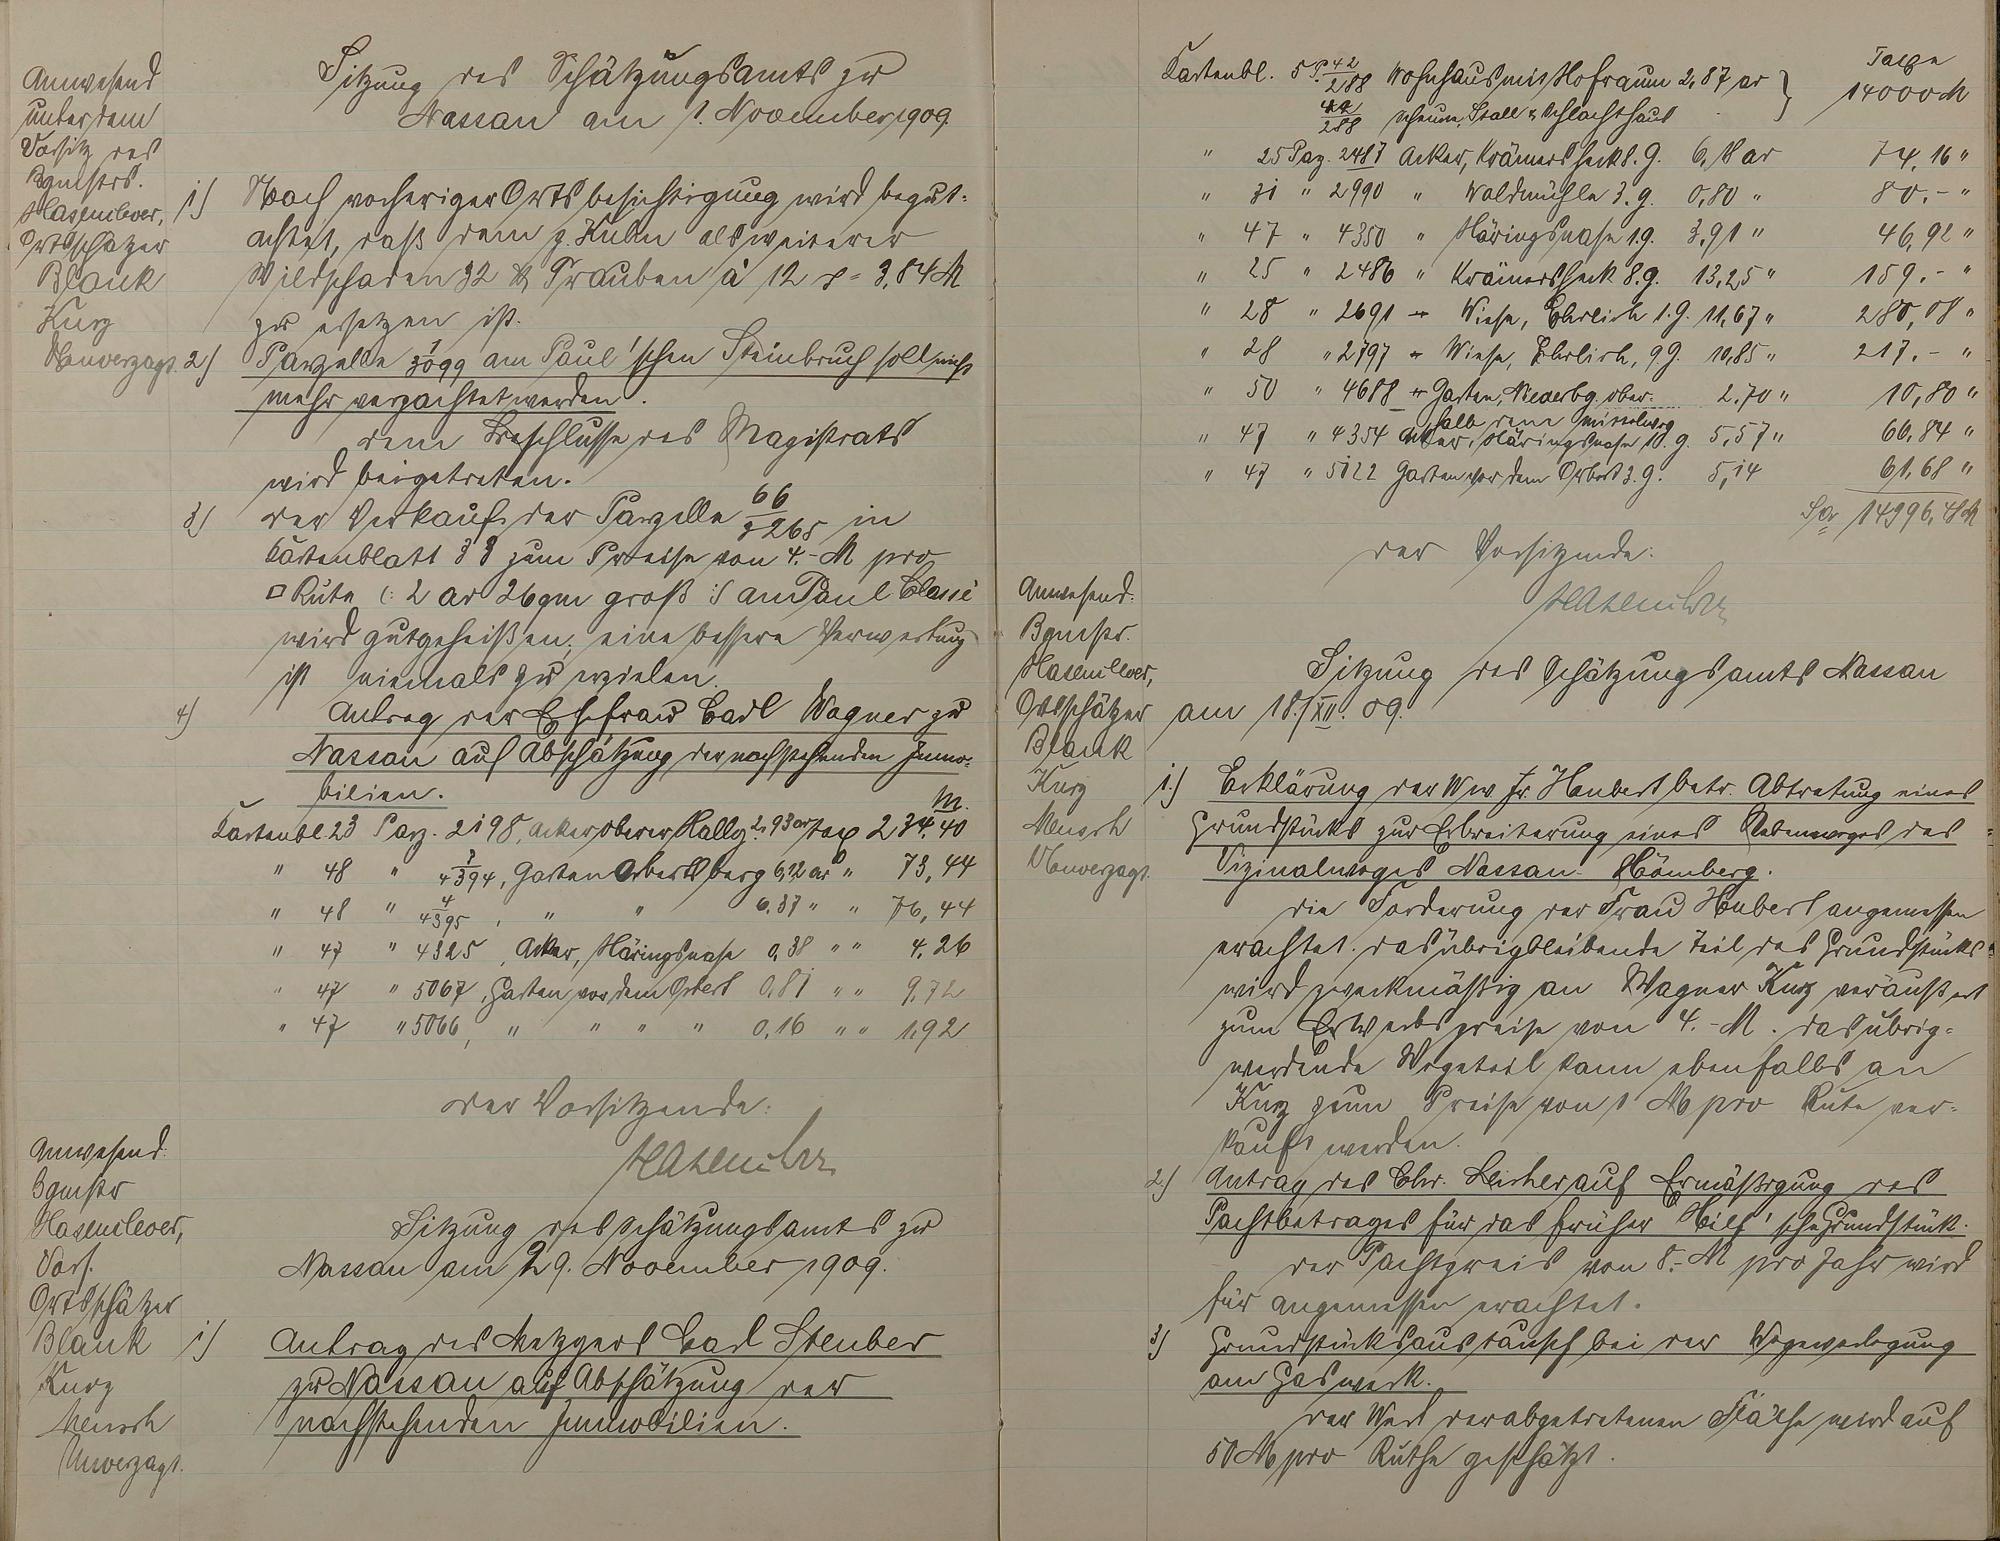 Anwesend
unter dem
Vorsitz des
Bgmstrs.
Hasenclever,
Ortsschätzer
Blank
Kurz
Unverzagt.
Sitzung des Schätzungsamts zu
Nassau am 1. November 1909.
1) Nach vorheriger Ortsbesichtigung wird begut-
achtet, daß dem p. Kuhn als weiterer
Wildschaden 32 ℔ Trauben à 12 ₰ = 3,84 M
zu ersetzen ist.
2) Parzelle 1/3099 am Paul'schen Steinbruch soll nicht
mehr verpachtet werden.
Dem Beschlusse des Magistrats
wird beigetreten.
3) Der Verkauf der Parzelle 66/3265 in
Kartenblatt 33 zum Preise von 4.- M pro
□ Rute (: 2 ar 26 qm groß :) an Paul Classé
wird gutgeheißen; eine bessere Verwertung
ist niemals zu erzielen.
4) Antrag der Ehefrau Carl Wagner zu
Nassau auf Abschätzung der nachstehenden Immo-
bilien.
M.
Kartenbl. 23 Parz. 2198, Acker, oberer Hallg. 2,93 ar Tax 234.40
" 48 " 1/4394, Garten Oberstberg 6,12 ar " 73,44
" 48 " 4/4395, " " 6,37 " " 76,44
" 47 " 4325, Acker, Häringsnase 0,38 " " 4,26
" 47 " 5067, Garten vor dem Obert 0,81 " " 9,72
" 47 " 5066, " " " " 0,16 " " 1,92
Der Vorsitzende:
Hasenclever
Anwesend.
Bgmstr
Hasenclever,
Vors.
Ortsschätzer
Blank
Kurz
Mensch
Unverzagt.
Sitzung des Schätzungsamts zu
Nassau am 29. November 1909.
1) Antrag des Metzgers Carl Steuber
zu Nassau auf Abschätzung der
nachstehenden Immobilien.
Taxe
Kartenbl. 5 P. 42/288 Wohnhaus mit Hofraum 2,87 ar } 14000 M
/288 Scheune, Stall u. Schlachthaus
" 25 Parz. 2487 Acker, Krämersheck 8. G. 6,18 ar 74,16 "
" 31 " 2990 " Waldmühle 3. G. 0,80 " 80.- "
" 47 " 4350 " Häringsnase 1. G. 3,91 " 46,92 "
" 25 " 2486 " Krämersheck 8. G. 13,25 " 159.- "
" 28 " 2691 " Wiese, Ehrlich 1. G. 11,67 " 280,08 "
" 28 " 2797 " Wiese, Ehrlich, 9 G. 10,85 " 217.- "
" 50 " 4688 " Garten, Niederbg. ober- 2,70 " 10,80 "
halb dem Mittelweg
" 47 " 4354 Acker, Häringsnase 1. G. 5,57 " 66,84 "
" 47 " 5122 Garten vor dem Obert 3. G. 5,14 61,68 "
Sa 14996,48 M
Der Vorsitzende:
Hasenclever
Anwesend:
Bgmstr.
Hasenclever,
Ortsschätzer
Blank
Kurz
Mensch
Unverzagt.
Sitzung des Schätzungsamts Nassau
am 18./XII. 09.
1.) Erklärung der Ww Fr. Heubert betr. Abtretung eines
Grundstücks zur Erbreiterung eines Nebenweges des
Vizinalweges Nassau-Hömberg.
Die Forderung der Frau Heubert angemessen
erachtet. Das übrigbleibende Teil des Grundstücks
wird zweckmäßig an Wagner Kurz veräußert
zum Erwerbspreise von 4.- M. Das übrig-
werdende Wegeteil kann ebenfalls an
Kurz zum Preise von 1 M pro Rute ver-
kauft werden.
2) Antrag des Chr. Leicher auf Ermäßigung des
Pachtbetrages für das früher Hilf'sche Grundstück.
Der Pachtpreis von 8.- M pro Jahr wird
für angemessen erachtet.
3) Grundstücksaustausch bei der Wegeverlegung
am Gaswerk.
Der Wert der abgetretenen Fläche wird auf
50 M pro Ruthe geschätzt.